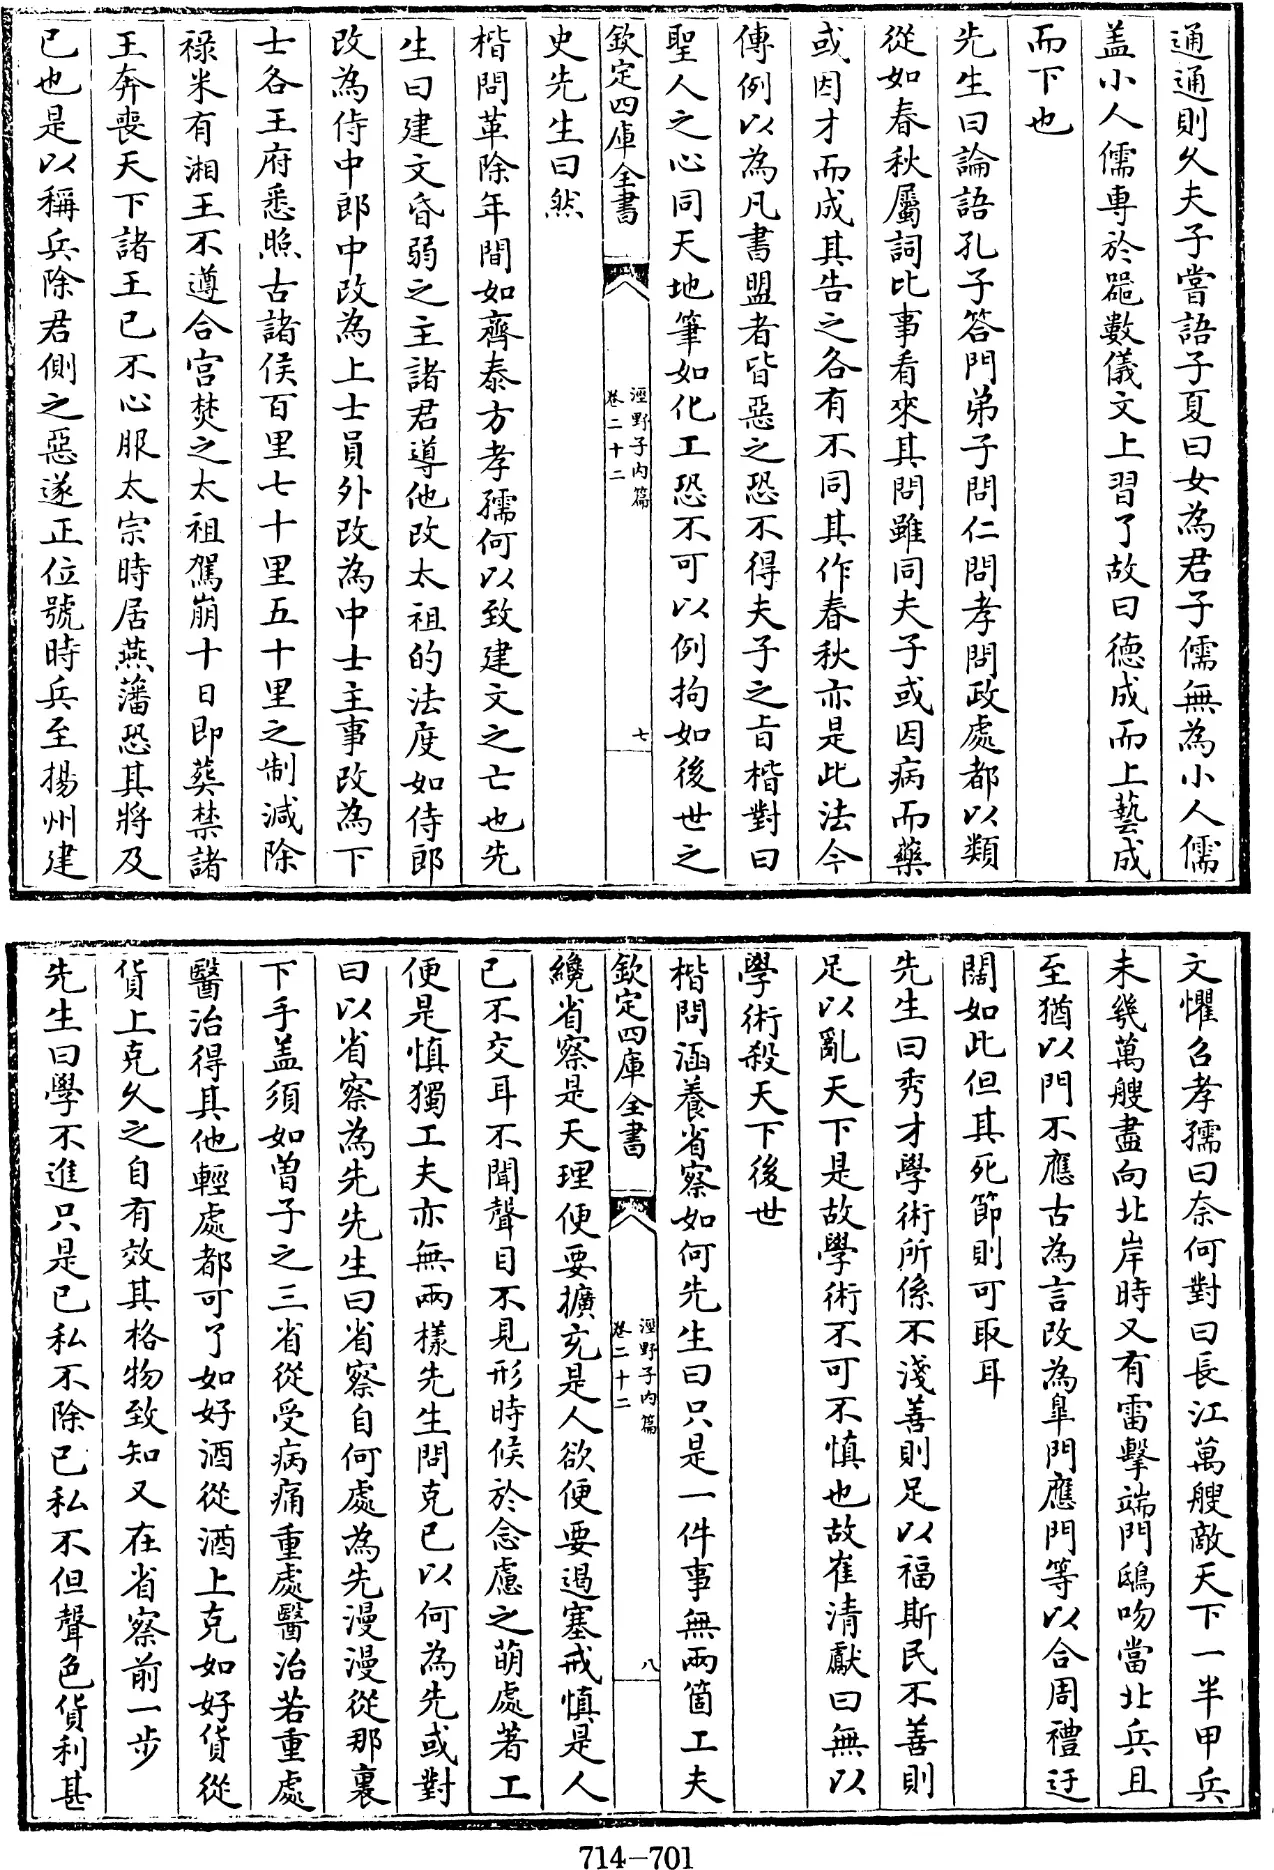 通通則久夫子嘗語子夏曰女為君子儒無為小人儒
盖小人儒專於器數儀文上習了故曰德成而上藝成
而下也
先生曰論語孔子答門弟子問仁問孝問政處都以類
從如春秋屬詞比事看來其問雖同夫子或因病而藥
或因才而成其告之各有不同其作春秋亦是此法今
傳例以為凡書盟者皆惡之恐不得夫子之旨楷對曰
聖人之心同天地筆如化工恐不可以例拘如後世之
欽定四庫全書
涇野子内篇
卷二十二
七
史先生曰然
楷問革除年間如齊泰方孝孺何以致建文之亡也先
生曰建文昏弱之主諸君導他改太祖的法度如侍郎
改為侍中郎中改為上士員外改為中士主事改為下
士各王府悉照古諸侯百里七十里五十里之制減除
祿米有湘王不遵合宫焚之太祖駕崩十日即葬禁諸
王奔喪天下諸王已不心服太宗時居燕藩恐其將及
已也是以稱兵除君側之惡遂正位號時兵至揚州建
文懼召孝孺曰奈何對曰長江萬艘敵天下一半甲兵
未幾萬艘盡向北岸時又有雷擊端門鴟吻當北兵且
至猶以門不應古為言改為臯門應門等以合周禮迂
闊如此但其死節則可取耳
先生曰秀才學術所係不淺善則足以福斯民不善則
足以亂天下是故學術不可不慎也故崔清獻曰無以
學術殺天下後世
楷問涵養省察如何先生曰只是一件事無兩箇工夫
欽定四庫全書
涇野子内篇
卷二十二
八
纔省察是天理便要擴充是人欲便要遏塞戒慎是人
已不交耳不聞聲目不見形時候於念慮之萌處著工
便是慎獨工夫亦無兩樣先生問克已以何為先或對
曰以省察為先先生曰省察自何處為先漫漫從那裏
下手盖須如曽子之三省從受病痛重處醫治若重處
醫治得其他輕處都可了如好酒從酒上克如好貨從
貨上克久之自有效其格物致知又在省察前一步
先生曰學不進只是已私不除已私不但聲色貨利甚
714—701